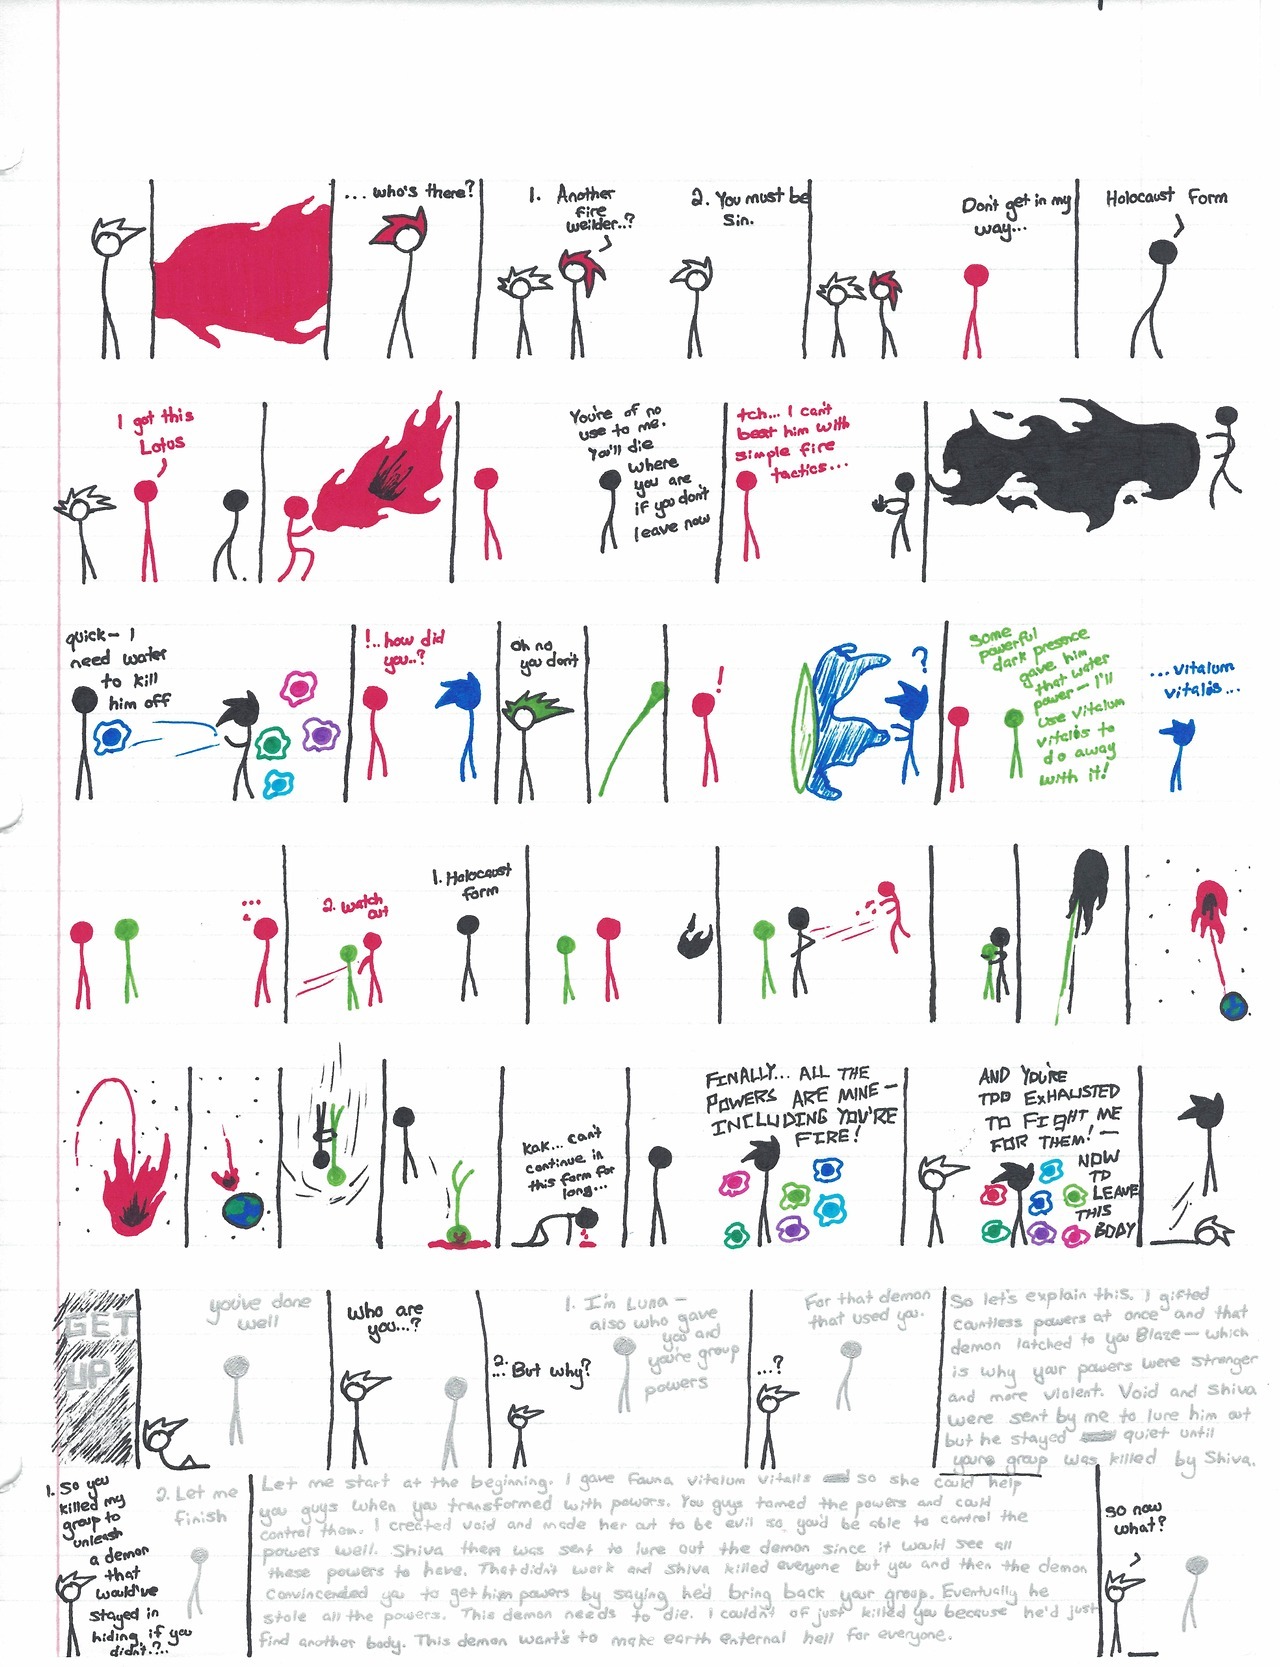 ... who's there?
1. Another
fire
weilder..?
2. You must be
Sin.
Don't get in my
way...
Holocaust Form
I got this
Lotus
You're of no
use to me.
You'll die
where
you are
if you don't
leave now
tch... I can't
beat him with
simple fire
tactics...
quick- I
need water
to kill
him off
!.. how did
you..?
Oh no
you don't
!
?
Some
powerful
dark presence
gave him
that water
power- I'll
use vitalum
vitalis to
do away
with it!
...vitalum
vitalis...
...
2. watch
out
1. Holocaust
form
kak... can't
continue in
this form for
long...
FINALLY... ALL THE
POWERS ARE MINE-
INCLUDING YOU'RE
FIRE!
AND YOU'RE
TOO EXHAUSTED
TO FIGHT ME
FOR THEM!-
NOW
TO
LEAVE
THIS
BODY
GET
UP
you've done
well
Who are
you...?
1. I'm Luna-
also who gave
you and
you're group
powers
2.
... But why?
For that demon
that used you.
...?
So let's explain this. I gifted
countless powers at once and that
demon latched to you Blaze- which
is why your powers were stronger
and more violent. Void and Shiva
were sent by me to lure him out
but he stayed quiet until
youre group was killed by Shiva.
1. So you
killed my
group to
unleash
a demon
that
would've
stayed in
hiding if you
didn't?...
2. Let me
finish
Let me start at the beginning. I gave Fauna vitalum vitalis so she could help
you guys when you transformed with powers. You guys tamed the powers and could
control them. I created void and made her out to be evil so you'd be able to control the
powers well. Shiva then was sent to lure out the demon since it would see all
these powers to have. That didn't work and Shiva killed everyone but you and then the demon
convincended you to get him powers by saying he'd bring back your group. Eventually he
stole all the powers. This demon needs to die. I couldn't of just killed you because he'd just
find another body. This demon want's to make earth enternal hell for everyone.
so now
what?